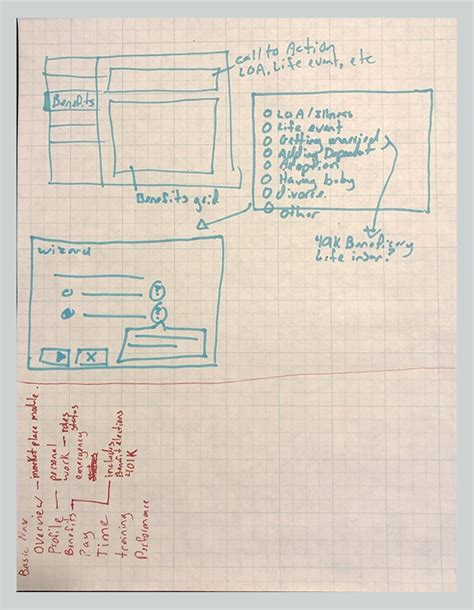 call to Action
LOA, Life event, etc
Benefits
Benefits grid
LOA/Illness
Life event
Getting married
Adding Dependent
Adoption
Having baby
divorce
Other
401K Beneficiary
Life insur?
wizard
? 
?
X
Basic Nav
Overview - market place module.
Profile - personal
work - roles
status
emergency
Benefits - includes
Benefit elections
401K
Pay
Time
training
Performance